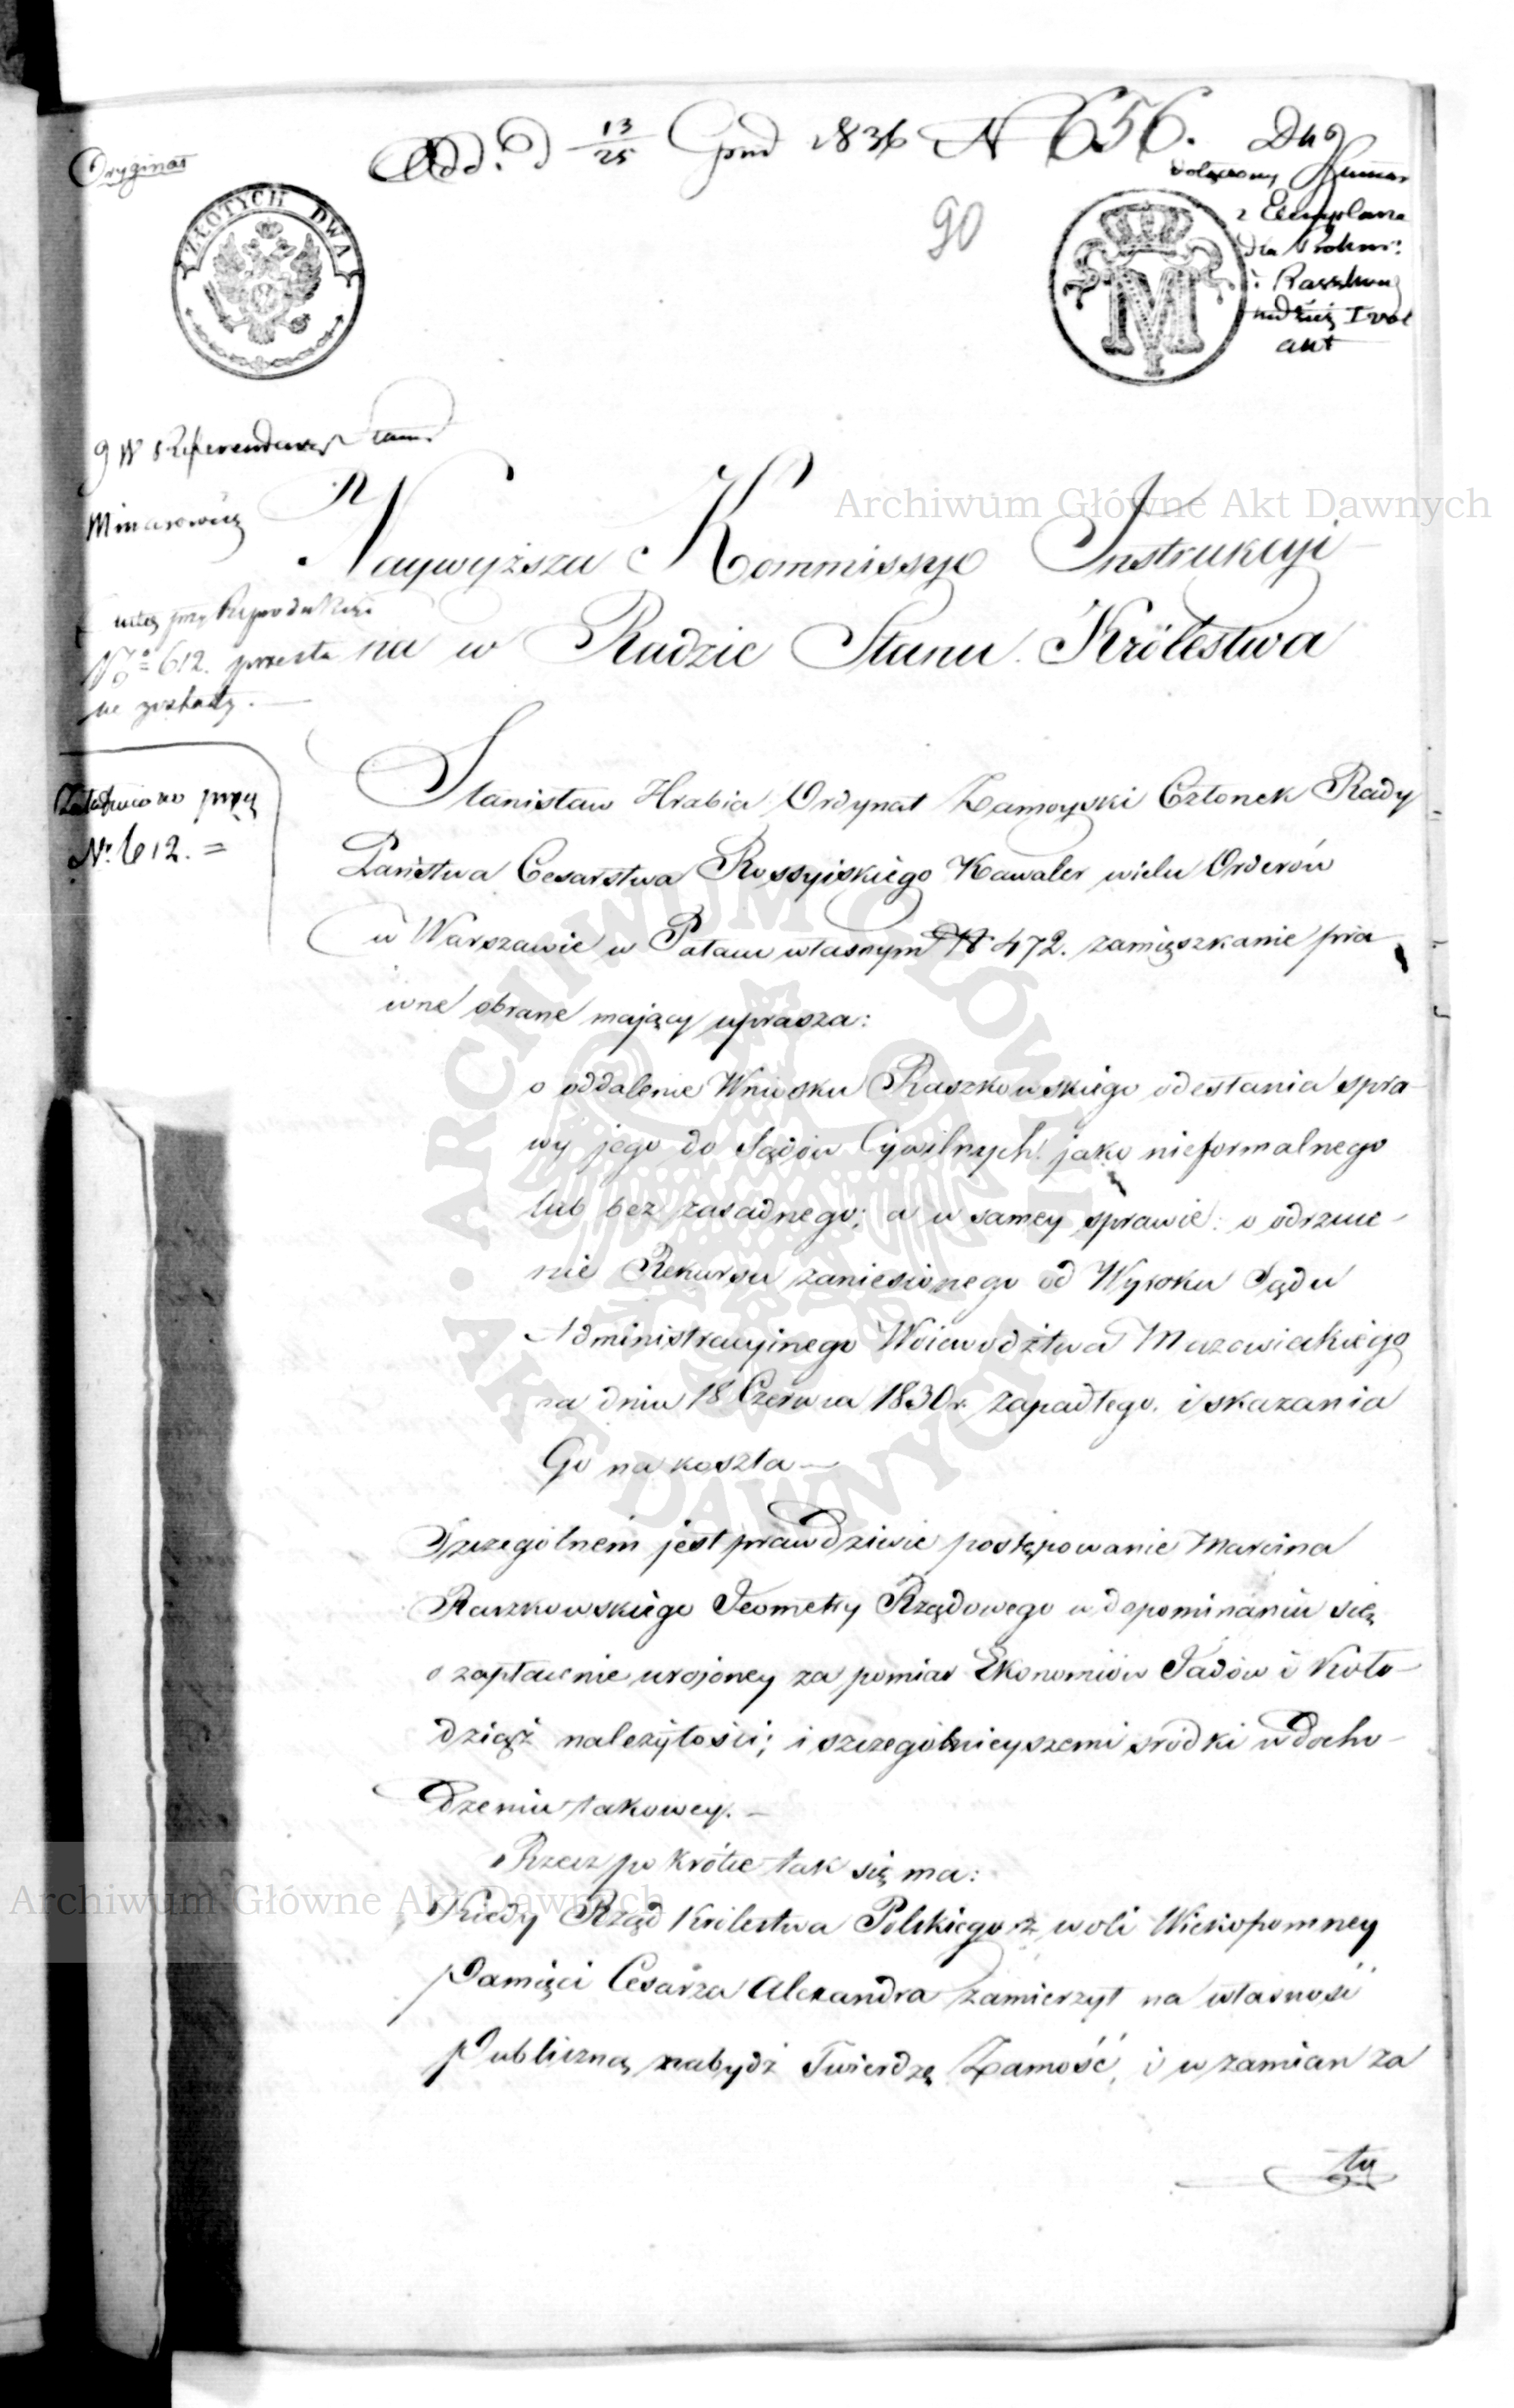 Oryginał
13/25 Grud 1836 N 656.
90
ZŁOTYCH DWA
M
dołączony
2 Exemplarze
dla Prokur:
i Raszkow
akt
Referendarz
Minasowicz
Naywyższa Kommissyo Instrukcyi
na w Radzie Stanu Królestwa
przy Reprodukcyi
No 612. przesła
ne zostały.
Załatwiono przy
Nr. 612. =
Stanisław Hrabia Ordynat Zamoyski Członek Rady
Państwa Cesarstwa Rossyiskiego Kawaler wielu Orderów
w Warszawie w Pałacu własnym N 472. zamięszkanie pra
wne obrane mający uprasza:
o oddalenie Wniosku Raszkowskiego odesłania spra-
wy jego do Sądów Cywilnych jako nieformalnego
lub bez zasadnego; a w samey sprawie: o odrzuce-
nie Rekursu zaniesionego od Wyroku Sądu
Administracyinego Woiewodztwa Mazowiackiego
na dniu 18 Czerwca 1830 r. zapadłego. i skazania
Go na koszta —
Szczególnem jest prawdziwie postępowanie Marcina
Raszkowskiego Jeometry Rządowego w dopominaniu się
o zapłacenie urojoney za pomiar Ekonomiów Sadów i Koło-
dziąż należytości; i szczególnieyszemi srodki w docho-
dzeniu takowey. —
Rzecz po krótce tak się ma:
Kiedy Rząd Królestwa Polskiego z woli Wiekopomney
Pamięci Cesarza Alexandra zamierzył na własność
Publiczną nabydź Twierdzę Zamość, i w zamian za
tę
Archiwum Główne Akt Dawnych
ARCHIWUM GŁÓWNE AKT DAWNYCH
Archiwum Główne Akt Dawnych